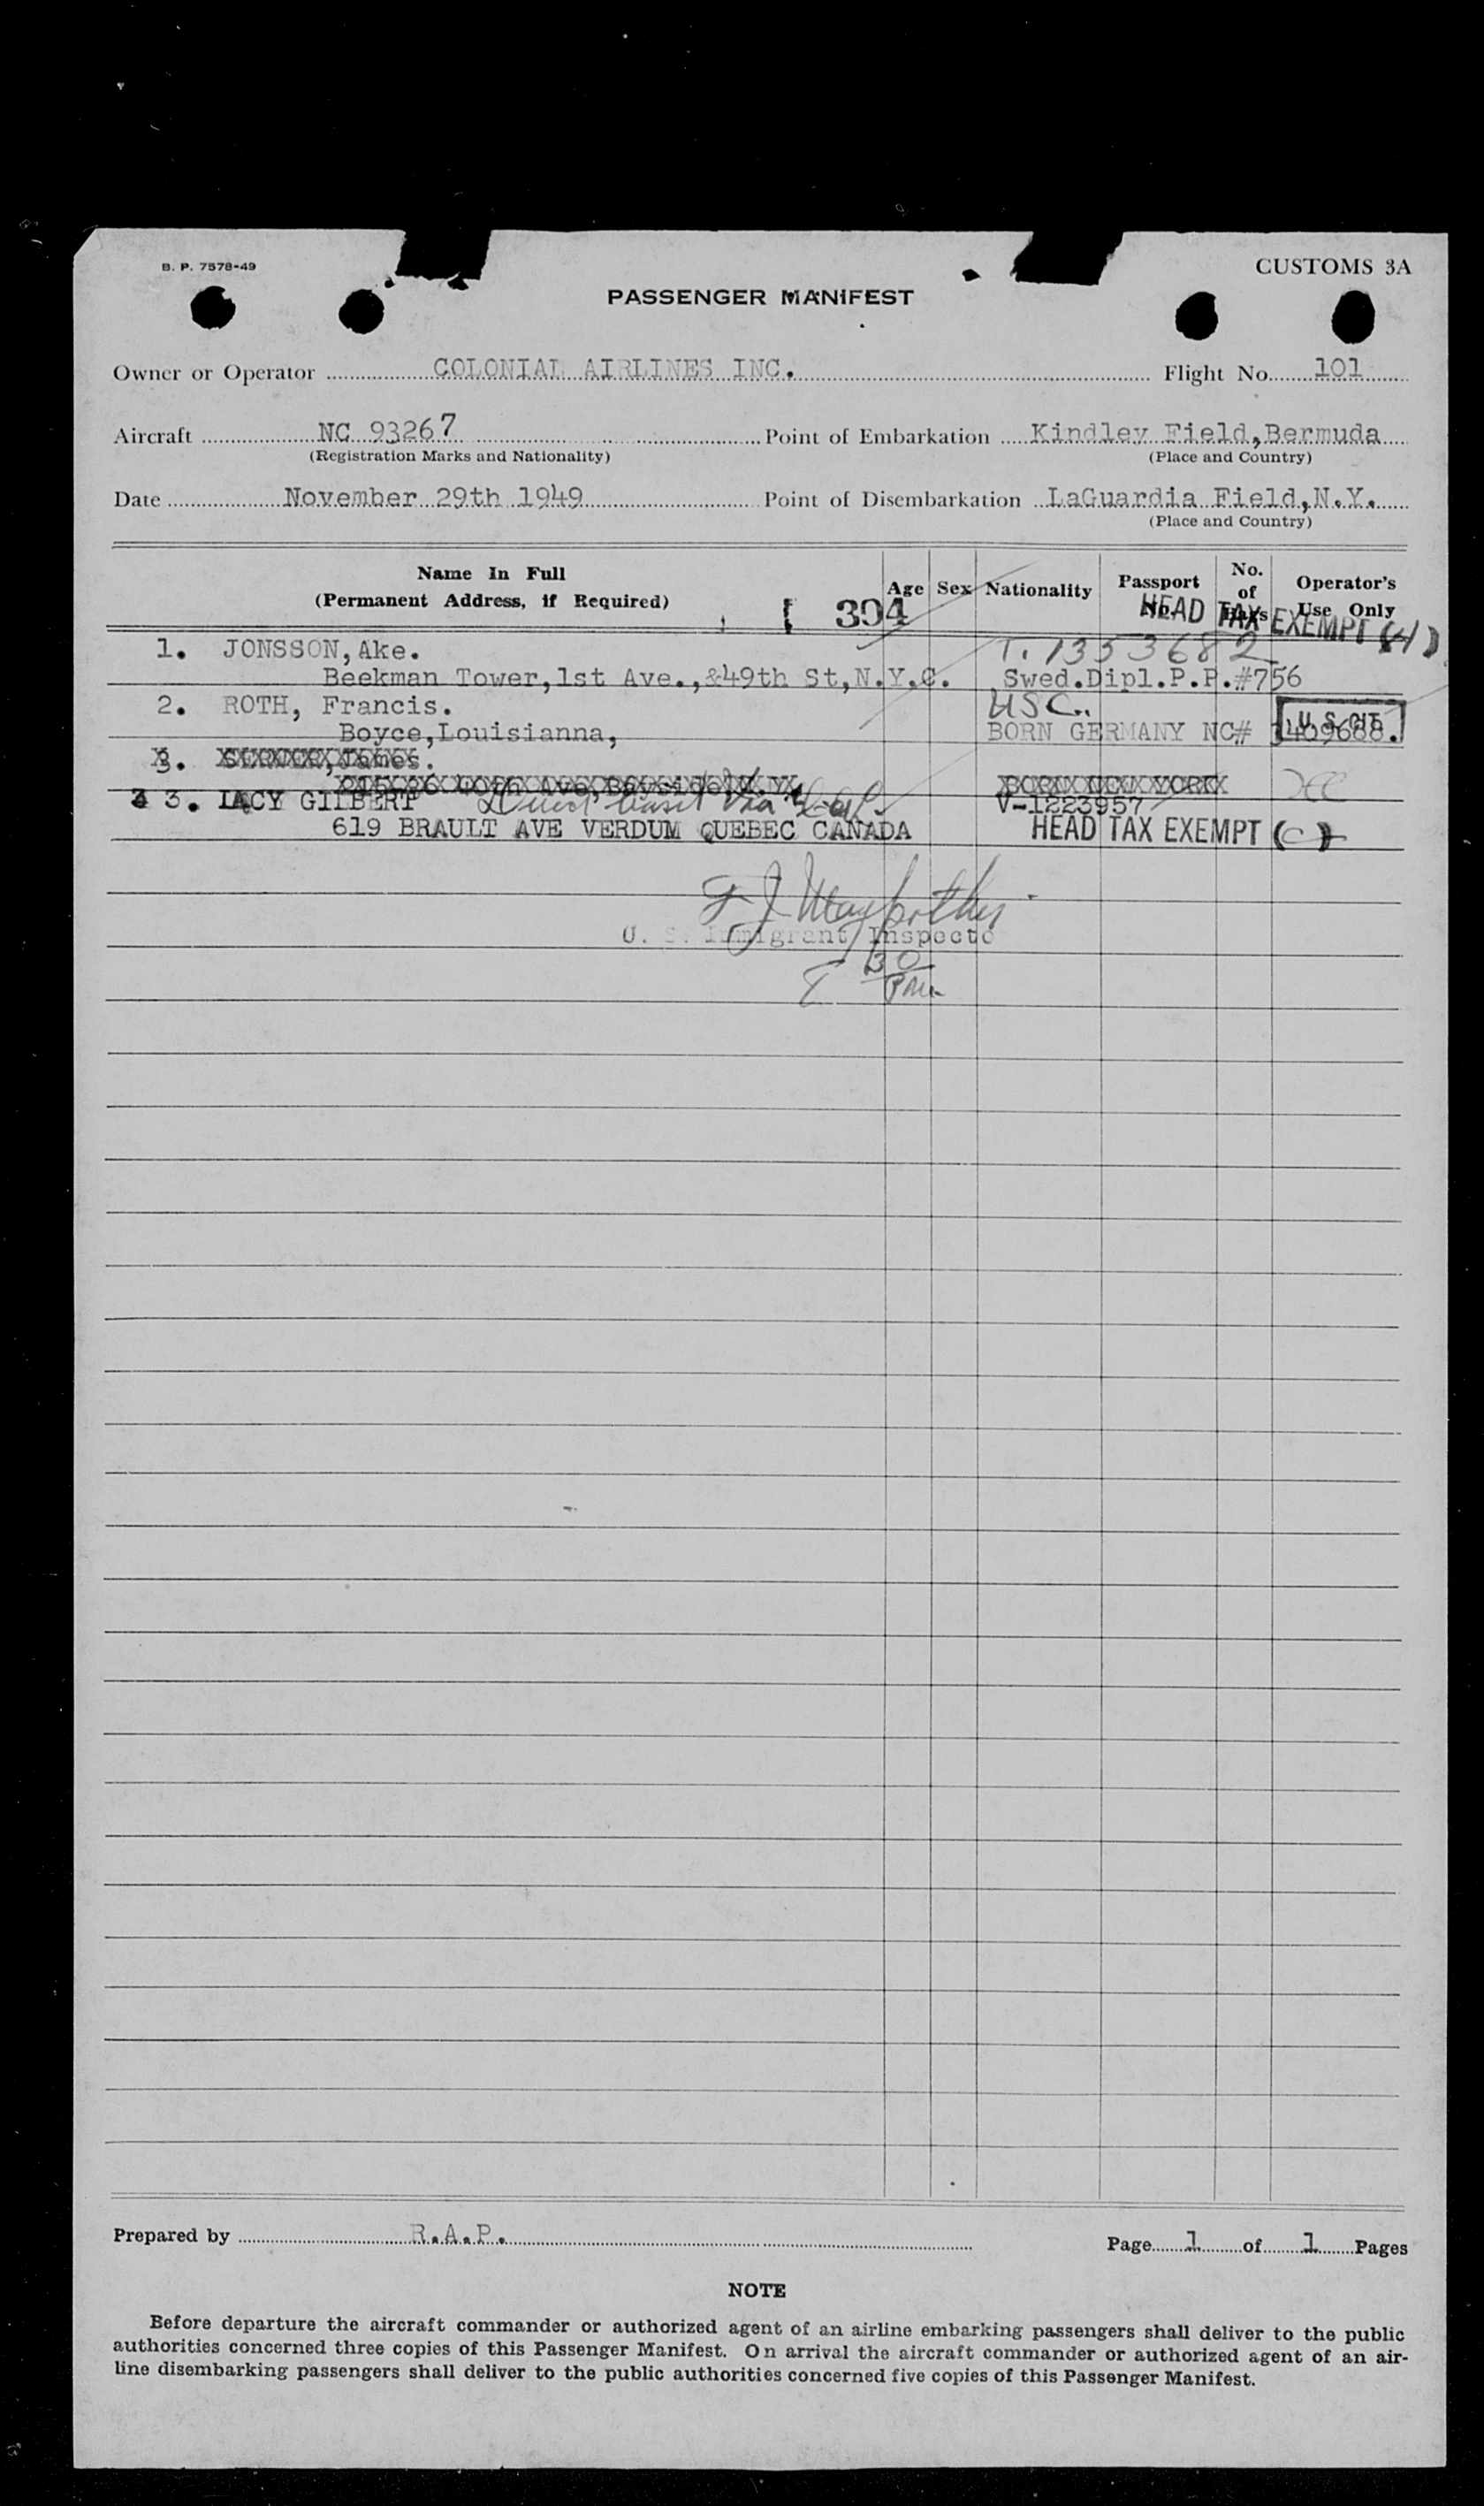 B. P. 7578-49
CUSTOMS 3A
PASSENGER MANIFEST
Owner or Operator COLONIAL AIRLINES INC. Flight No. 101
Aircraft NC 93267 Point of Embarkation Kindley Field,Bermuda
(Registration Marks and Nationality) (Place and Country)
Date November 29th 1949 Point of Disembarkation LaGuardia Field,N.Y.
(Place and Country)
Name In Full
(Permanent Address, if Required)
Age Sex Nationality Passport No. No. of Operator's Use Only
394
HEAD TAX EXEMPT
1. JONSSON,Ake. T. 1353682
Beekman Tower,1st Ave.,&49th St,N.Y.C. Swed.Dipl.P.P.#756
2. ROTH, Francis. USC. U. S. CIT.
Boyce,Louisianna, BORN GERMANY NC# 3409688.
3. James.
Ave, Bayside N.Y. BORN NEW YORK
3. LACY GILBERT V-1223957
619 BRAULT AVE VERDUM QUEBEC CANADA HEAD TAX EXEMPT (C)
U. S. Immigrant Inspecto
30
PM
Prepared by R.A.P. Page 1 of 1 Pages
NOTE
Before departure the aircraft commander or authorized agent of an airline embarking passengers shall deliver to the public
authorities concerned three copies of this Passenger Manifest. On arrival the aircraft commander or authorized agent of an air-
line disembarking passengers shall deliver to the public authorities concerned five copies of this Passenger Manifest.